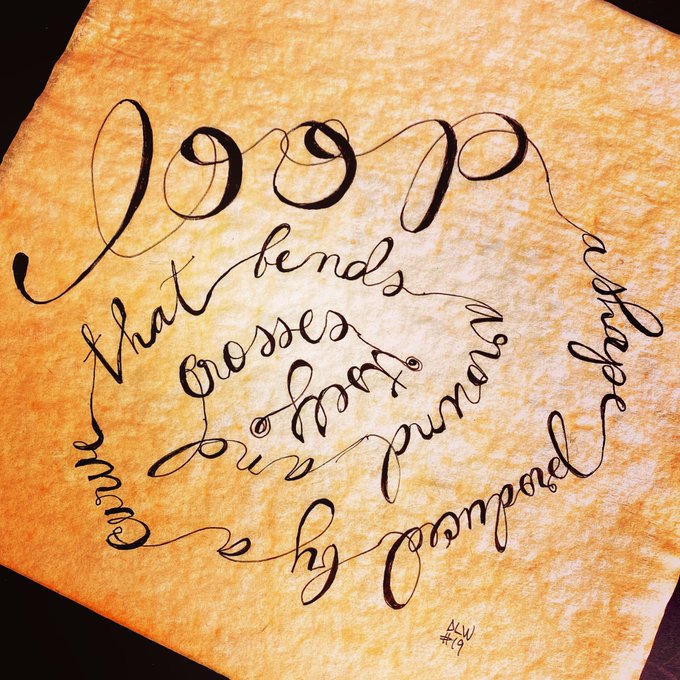 loop
a shape produced by a curve that bends around and crosses itself
DLW
#19